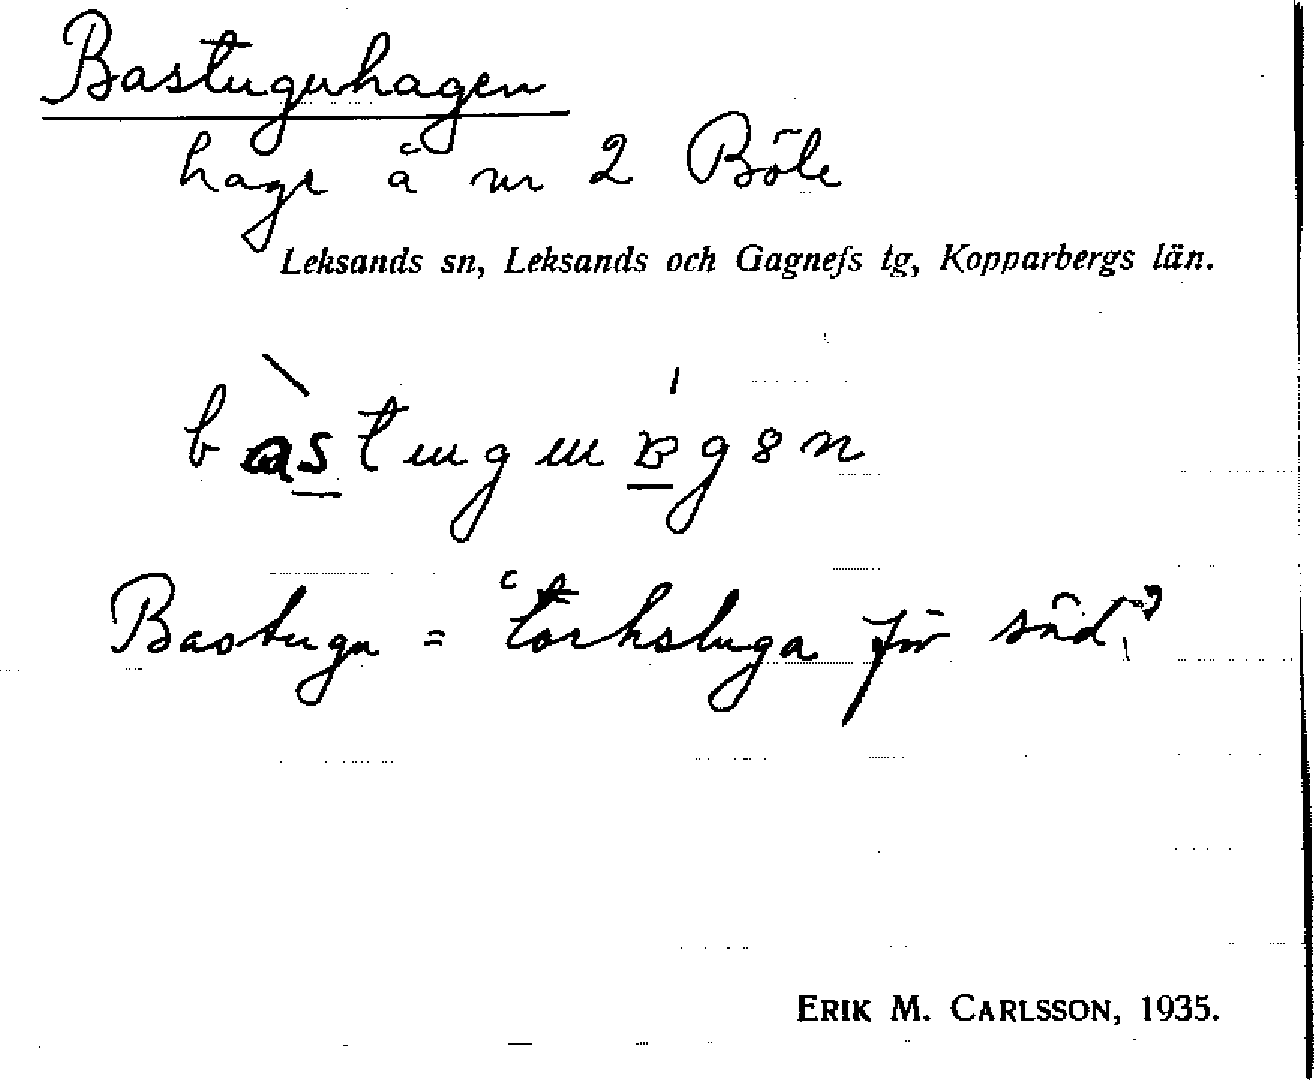 Bastuguhagen
hage å nr 2 Böle
Leksands sn, Leksands och Gagnefs tg, Kopparbergs län.
Bastugu = "torkstuga för säd."
ERIK M. CARLSSON, 1935.